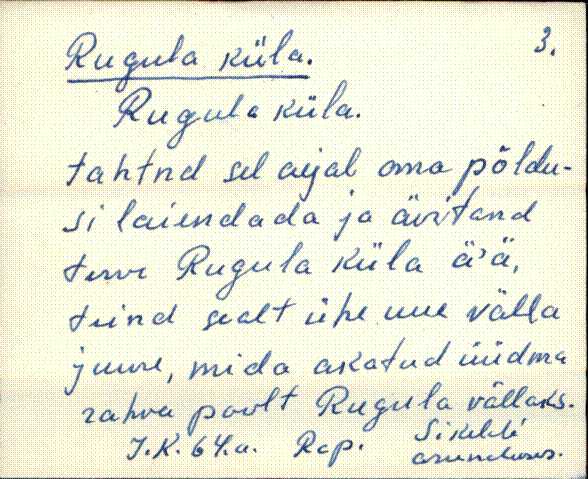 3.
Rugula küla.
Rugula küla.
tahtnd sel aejal oma põldu-
si laiendada ja ävitand
terve Rugula küla ä'ä,
teind sealt ühe uue välla
juure, mida akatud üüdma
rahva poolt Rugula vällaks.
J.K. 64.a. Rap.